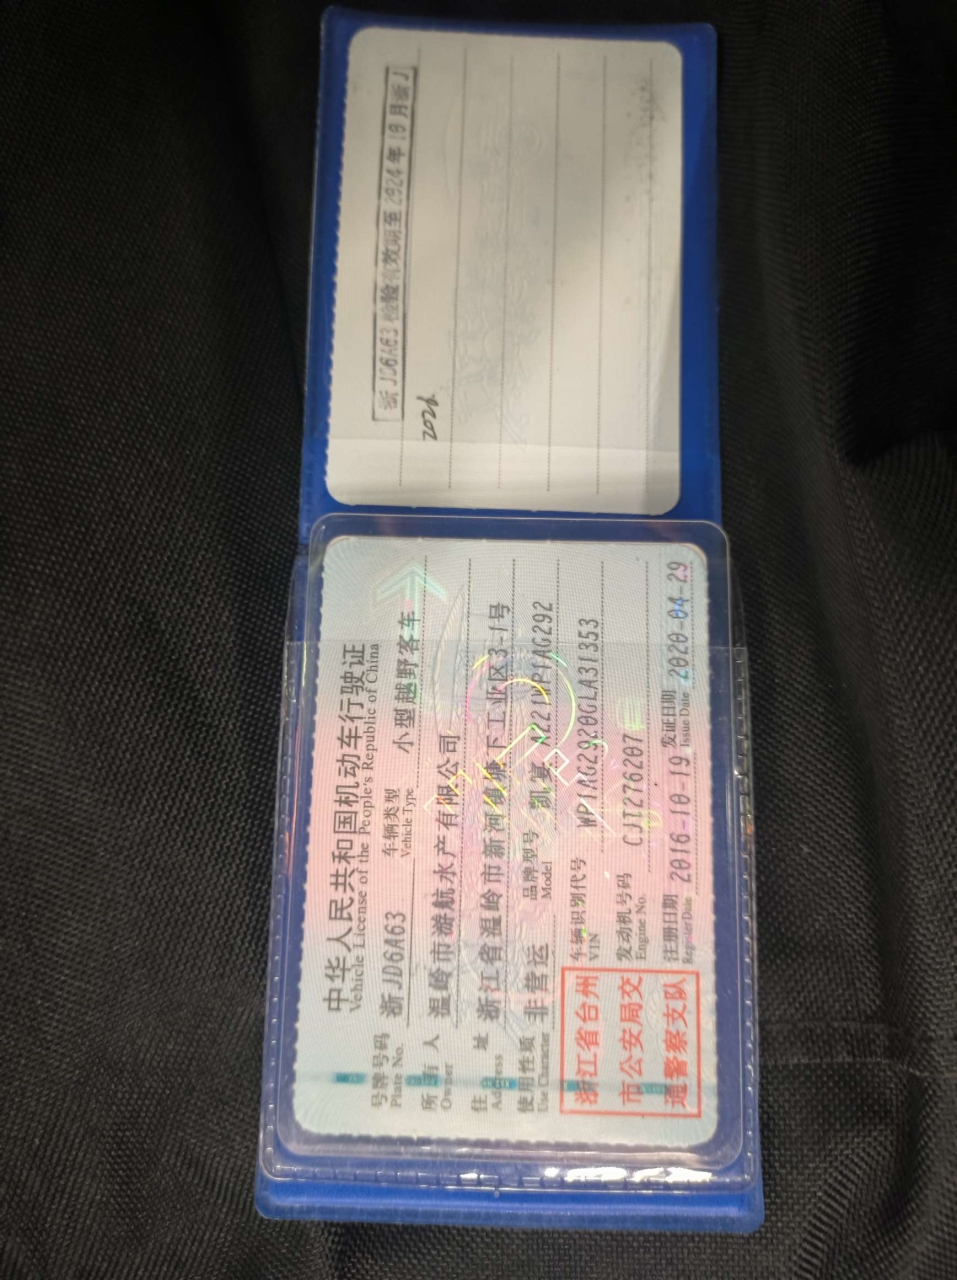 中华人民共和国机动车行驶证
Vehicle License of the People's Republic of China
号牌号码 浙JD6A63 车辆类型 小型越野客车
Plate No. Vehicle Type
所有人 温岭市游航水产有限公司
Owner
住址 浙江省温岭市新河镇塘下工业区3-1号
Address
使用性质 非营运 品牌型号 凯宴 WP1AG292
Use Character Model
浙江省台州
市公安局交
通警察支队
车辆识别代号 WP1AG2920GLA31353
VIN
发动机号码 CJT276207
Engine No.
注册日期 2016-10-19 发证日期 2020-04-29
Register Date Issue Date
浙JD6A63检验有效期至2024年10月浙J